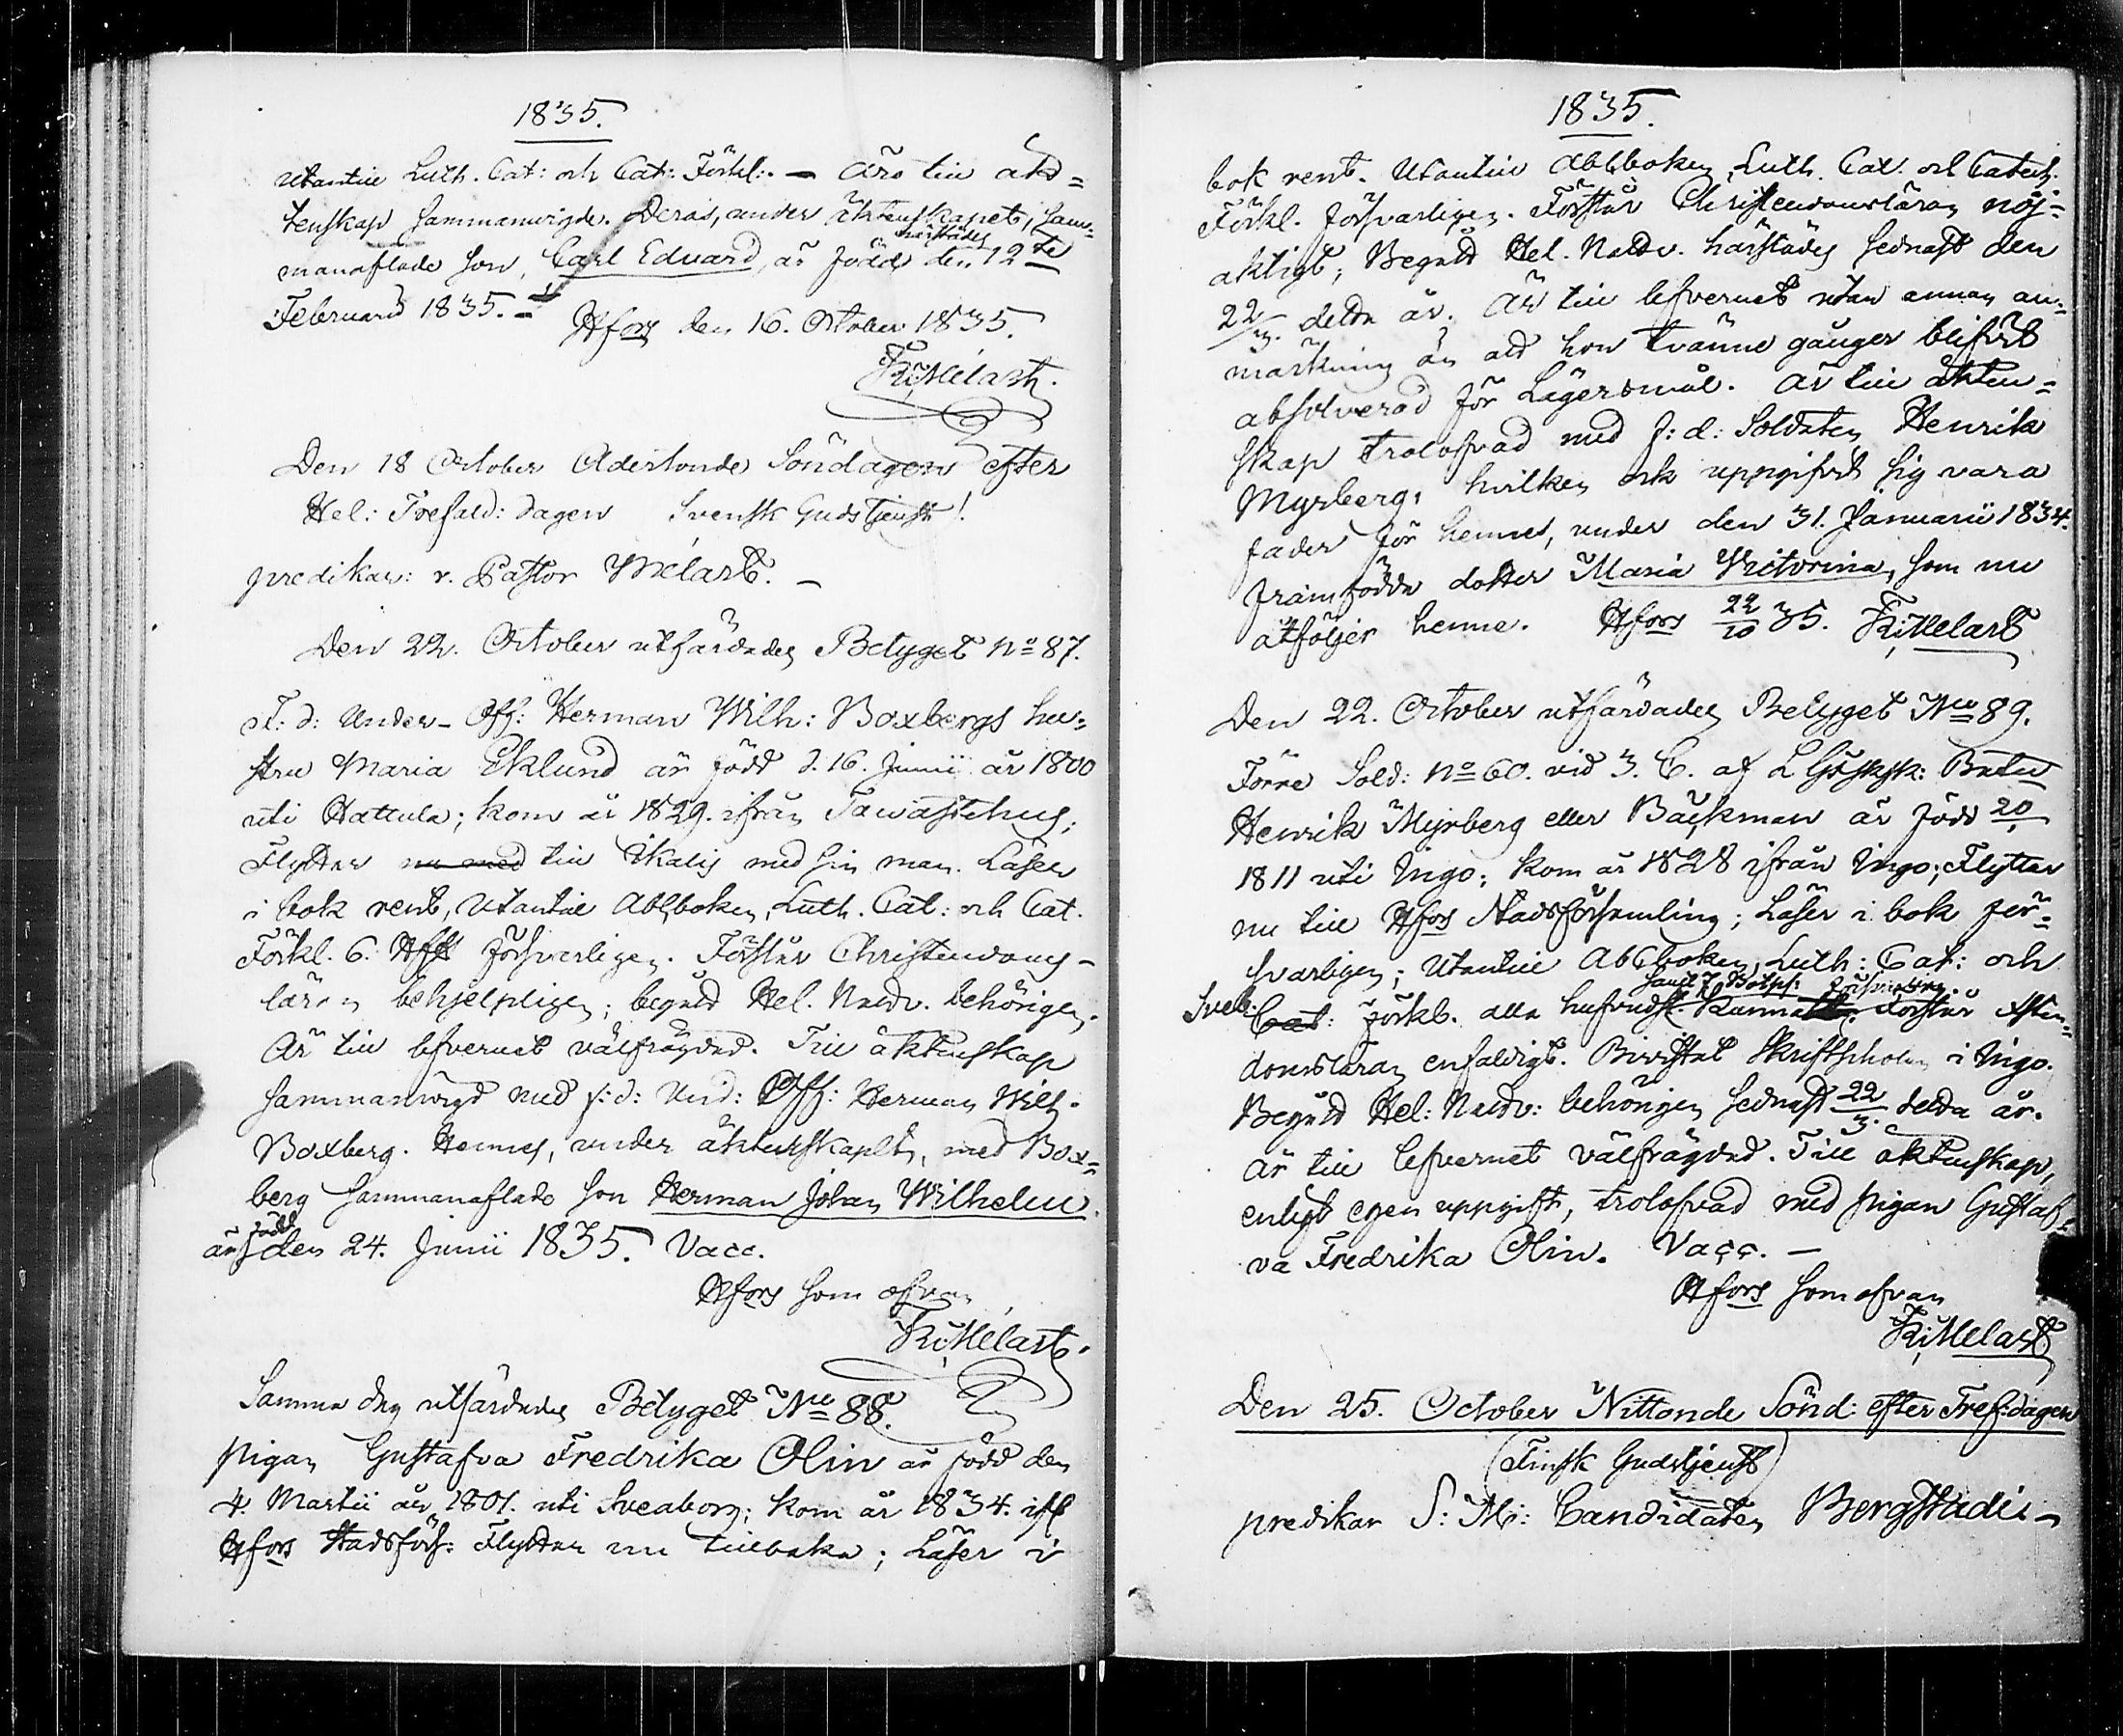 1835.
utantill Luth. Cat: och Cat: Förkl: – Äro till äkt=
tenskap sammanvigde. Deras, under äktenskapet, sam=
härstädes
manaflade son, Carl Eduard, är född den 12te
Februarii 1835. –
Hfors den 16. October 1835.
Fr: Melart.
Den 18 October Adertonde Söndagen efter
Hel: Trefald: dagen Svensk Gudstjenst!
predikar: v. Pastor Melart. –
Den 22. October utfärdades Betyget No 87.
F: d: Under-Off: Herman Wilh: Boxbergs hu=
stru Maria Eklund är född d. 16. Junii år 1800
uti Hattula; kom år 1829. ifrån Tawastehus;
Flyttar nu med till Ikalis med sin man. Läser
i bok rent, Utantill Abcboken, Luth. Cat: och Cat.
Förkl. 6. Hfst försvarligen. Förstår Christendoms-
läran behjelpligen; begådd Hel. Nattv. behörigen.
Är till lefvernet välfrägdad. Till äktenskap
sammanvigd med f: d: Und: Off: Herman Wilh.
Boxberg. Hennes, under äktenskapet, med Box=
berg sammanaflade son Herman Johan Wilhelm.
född
är den 24. Junii 1835. Vacc.
Hfors som ofvan
Fr: Melart.
Samma dag utfärdades Betyget No 88.
Pigan Gustafva Fredrika Olin är född den
4. Martii år 1801. uti Sveaborg; kom år 1834. ifr
Hfors Stadsförs: Flyttar nu tillbaka; Läser i
1835.
bok rent. Utantill Abcboken, Luth. Cat. och Catech.
Förkl. försvarligen. Förstår Christendomsläran nöj=
aktigt; Begådd Hel. Nattv. härstädes sednast den
22/3. detta år. Är till lefvernet utan annan an=
märkning än att hon tvänne gånger blifvit
absolverad för Lägersmål. Är till äkten=
skap trolofvad med f: d: Soldaten Henrik
Myrberg, hvilken ock uppgifvit sig vara
fader för hennes, under den 31. Januarii 1834.
framfödda dotter Maria Victorina, som nu
åtföljer henne. Hfors 22/10 35. Fr: Melart
Den 22. October utfärdades Betyget No 89.
Förre Sold: No 60. vid 3. C. af L Gskjsk: Batn
Henrik Myrberg eller Bäckman är född 20/
1811 uti Ingo; kom år 1828 ifrån Ingo; Flyttar
nu till Hfors Stadsförsamling; Läser i bok för=
svarligen; Utantill Abcboken, Luth: Cat: och
samt 7 Botps: försvarligen.
Sveb: Cat: Förkl. alla hufvudst. Förstår Xsten=
domsläran enfaldigt. Bivistat Skriftskolan i Ingo.
Begådd Hel: Nattv: behörigen sednast 22/3. detta år.
Är till lefvernet välfrägdad. Till äktenskap,
enligt egen uppgift, trolofvad med pigan Gustaf=
va Fredrika Olin. Vacc. –
Hfors som ofvan
Fr: Melart
Den 25. October Nittonde Sönd: efter Tref: dagen
(Finsk Gudstjenst)
predikar S: M: Candidaten Bergstadi –